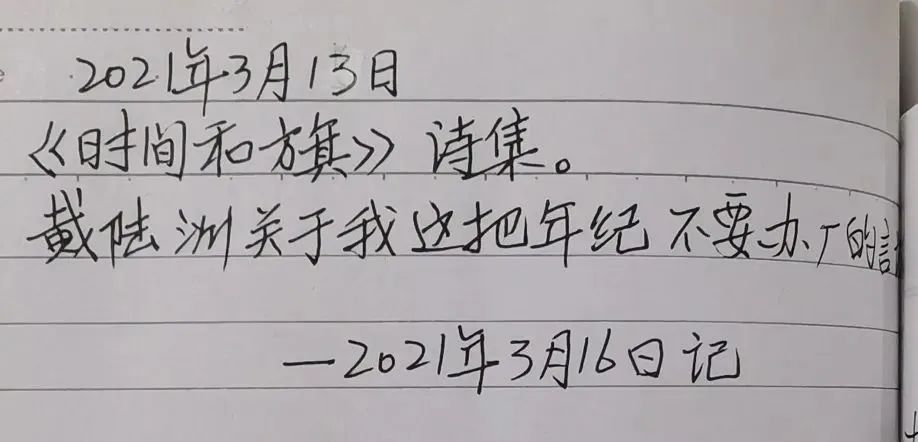 2021年3月13日
《时间和旗》诗集。
戴陆洲关于我这把年纪不要办厂的
—2021年3月16日记